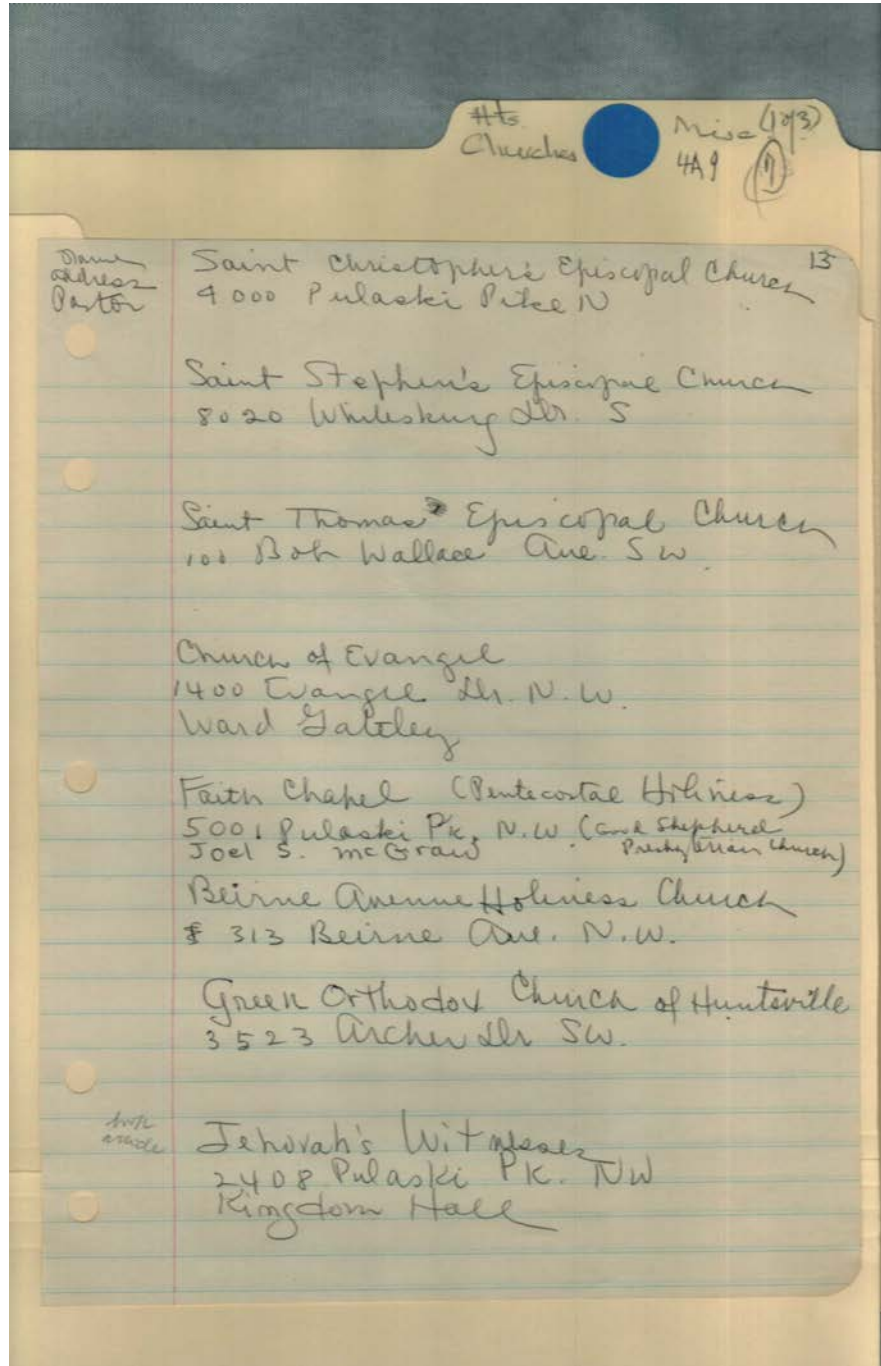 Hts.
Churches
Misc (1 of 3)
4A9 (7)
13
Name
address
Pastor
Saint Christopher's Episcopal Church
4000 Pulaski Pike N
Saint Stephen's Episcopal Church
8020 Whitesburg Dr. S
Saint Thomas' Episcopal Church
100 Bob Wallace Ave. SW
Church of Evangel
1400 Evangel Dr. N.W.
Ward
Faith Chapel (Pentecostal Holiness)
5001 Pulaski Pk, N.W. (and Shepherd
Joel S. McGraw Presbyterian Church)
Beirne Avenue Holiness Church
313 Beirne Ave. N.W.
Greek Orthodox Church of Huntsville
3523 Archer Dr SW.
Jehovah's Witnesses
2408 Pulaski PK. NW
Kingdom Hall